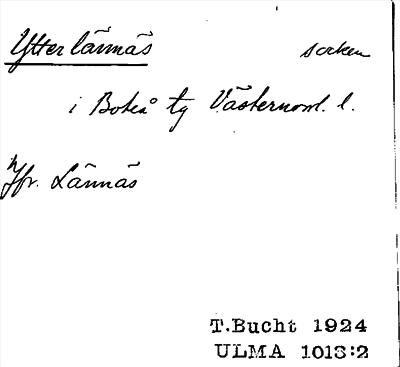 Ytterlännäs socken
i Boteå tg Västernorrl. l.
Jfr. Lännäs
T.Bucht 1924
ULMA 1013:2